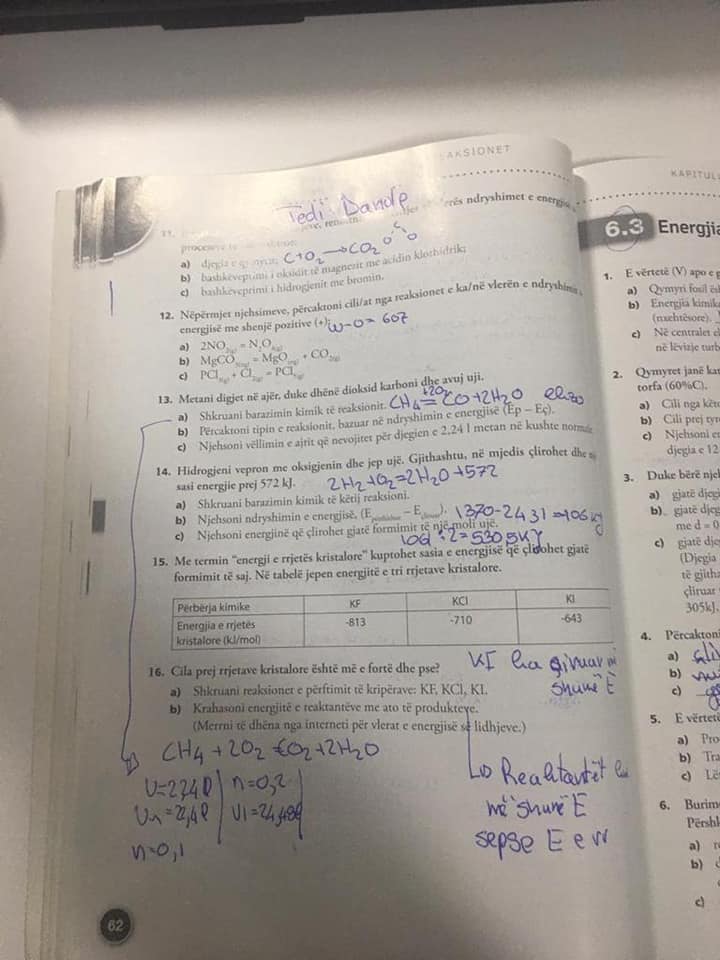 AKSIONET
Tedi Dande
11.
ndryshimet e energjisë
a) djegia e qymyrit; C+O₂→CO₂
b) bashkëveprimi i oksidit të magnezit me acidin klorhidrik;
c) bashkëveprimi i hidrogjenit me bromin.
12. Nëpërmjet njehsimeve, përcaktoni cili/at nga reaksionet e ka/në vlerën e ndryshimit
energjisë me shenjë pozitive (+): = 607
a) 2NO₂(g) = N₂O₄(g)
b) MgCO₃(ng) = MgO(ng) + CO₂(g)
c) PCl₃(g) + Cl₂(g) = PCl₅(g)
13. Metani digjet në ajër, duke dhënë dioksid karboni dhe avuj uji.
a) Shkruani barazimin kimik të reaksionit. CH₄ +2O₂ = CO+2H₂O ekzo
b) Përcaktoni tipin e reaksionit, bazuar në ndryshimin e energjisë (Ep – Eç).
c) Njehsoni vëllimin e ajrit që nevojitet për djegien e 2,24 l metan në kushte normale.
14. Hidrogjeni vepron me oksigjenin dhe jep ujë. Gjithashtu, në mjedis çlirohet dhe një
sasi energjie prej 572 kJ. 2H₂+O₂=2H₂O+572
a) Shkruani barazimin kimik të këtij reaksioni.
b) Njehsoni ndryshimin e energjisë, (E – E). 1370-2431=106 kJ
c) Njehsoni energjinë që çlirohet gjatë formimit të një moli ujë. 106÷2=530,5KJ
15. Me termin "energji e rrjetës kristalore" kuptohet sasia e energjisë që çlirohet gjatë
formimit të saj. Në tabelë jepen energjitë e tri rrjetave kristalore.
Përbërja kimike KF KCl KI
Energjia e rrjetës kristalore (kJ/mol) -813 -710 -643
16. Cila prej rrjetave kristalore është më e fortë dhe pse? KF ka më
shumë E
a) Shkruani reaksionet e përftimit të kripërave: KF, KCl, KI.
b) Krahasoni energjitë e reaktantëve me ato të produkteve.
(Merrni të dhëna nga interneti për vlerat e energjisë së lidhjeve.)
CH₄ + 2O₂ = CO₂+2H₂O
V=2,24l n=0,2
Vn=22,4l V1=24,48l
n=0,1
Reaktantët
më shumë E
sepse E e
62
KAPITULL
6.3 Energjia
1. E vërtetë (V) apo e
a) Qymyri fosil
b) Energjia kimike
(nxehtësore).
c) Në centralet
në lëvizje
2. Qymyret janë
torfa (60%C).
a) Cili nga
b) Cili prej
c) Njehsoni
djegia e 12
3. Duke bërë
a) gjatë
b) gjatë
me d = 0
c) gjatë
(Djegia
të gjitha
çliruar
305kJ.
4. Përcaktoni
a)
b)
c)
5. E vërtetë
a) Pro
b) Tra
c)
6. Burime
Përshk
a)
b)
c)